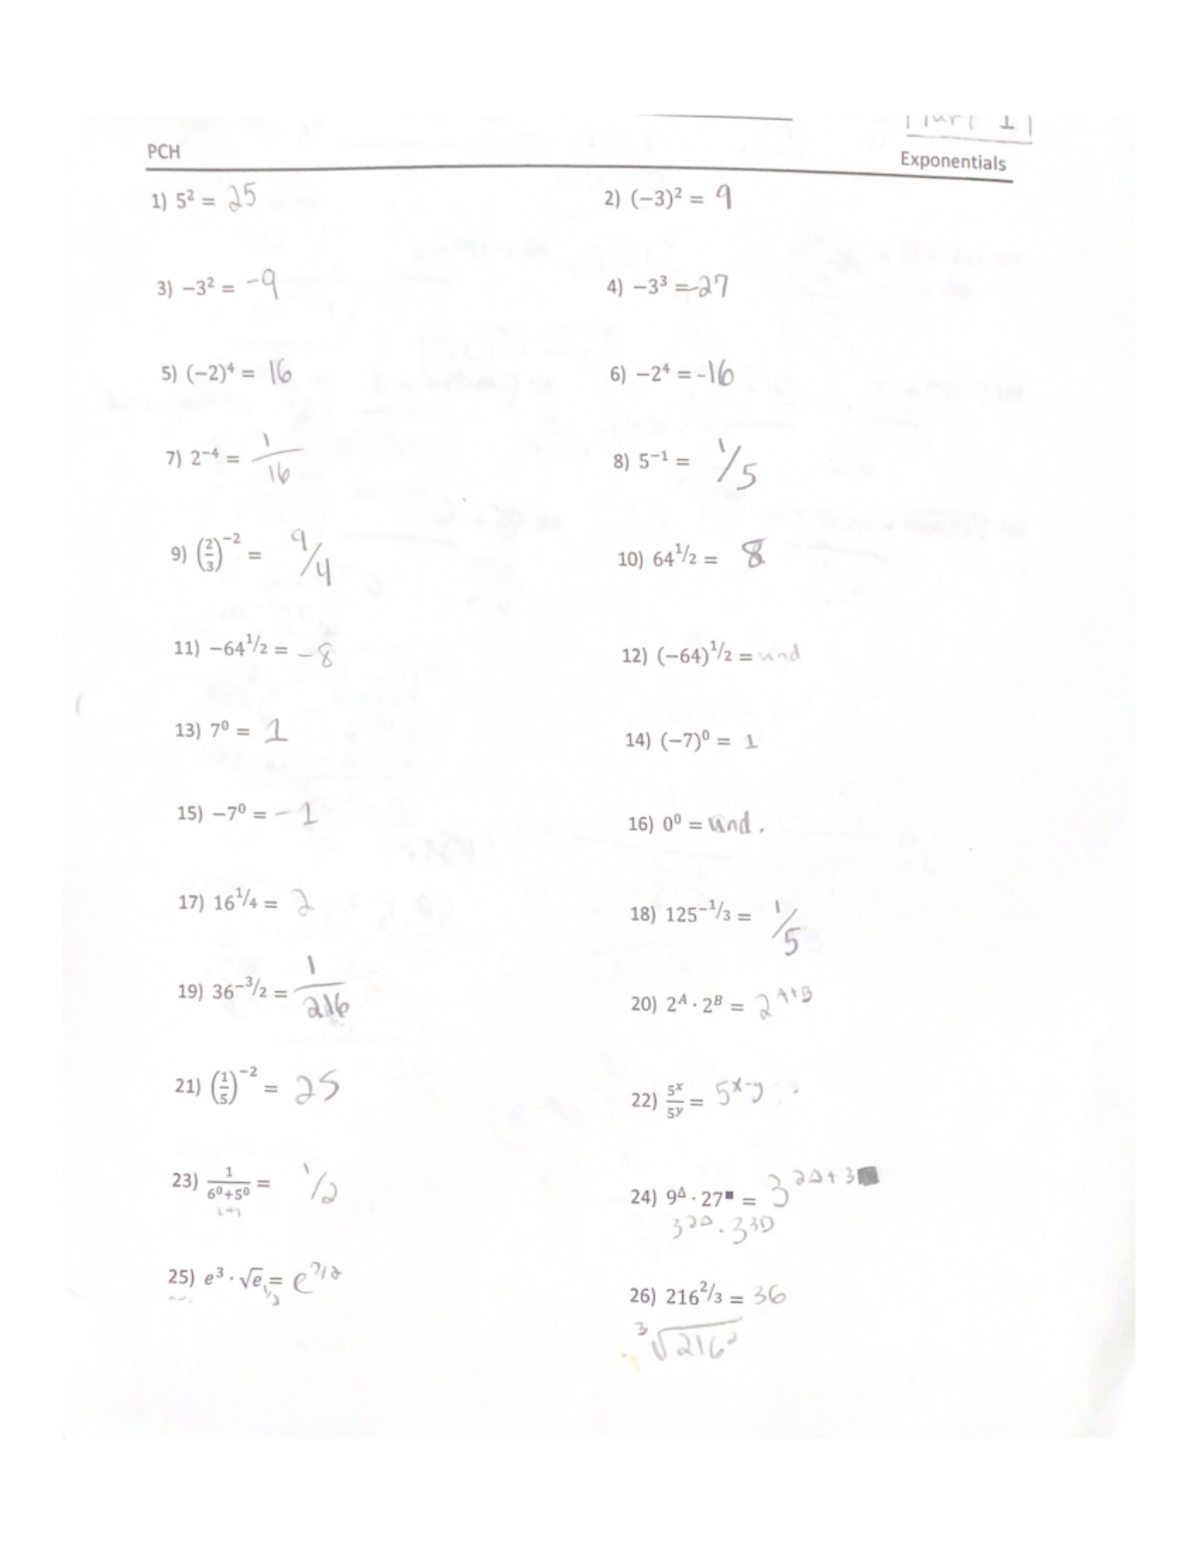 PCH
Exponentials
1) 5² = 25
2) (−3)² = 9
3) −3² = -9
4) −3³ = -27
5) (−2)⁴ = 16
6) −2⁴ = -16
7) 2⁻⁴ = 1/16
8) 5⁻¹ = 1/5
9) (2/3)⁻² = 9/4
10) 64^1/2 = 8
11) −64^1/2 = -8
12) (−64)^1/2 = und
13) 7⁰ = 1
14) (−7)⁰ = 1
15) −7⁰ = -1
16) 0⁰ = und.
17) 16^1/4 = 2
18) 125^−1/3 = 1/5
19) 36^−3/2 = 1/216
20) 2^A · 2^B = 2^A+B
21) (1/5)⁻² = 25
22) 5^x/5^y = 5^x-y
23) 1/(6⁰+5⁰) = 1/2
1+1
24) 9^Δ · 27^■ = 3^2Δ+3■
3^2Δ · 3^3□
25) e³ · √e = e^7/2
1/2
26) 216^2/3 = 36
³√216²